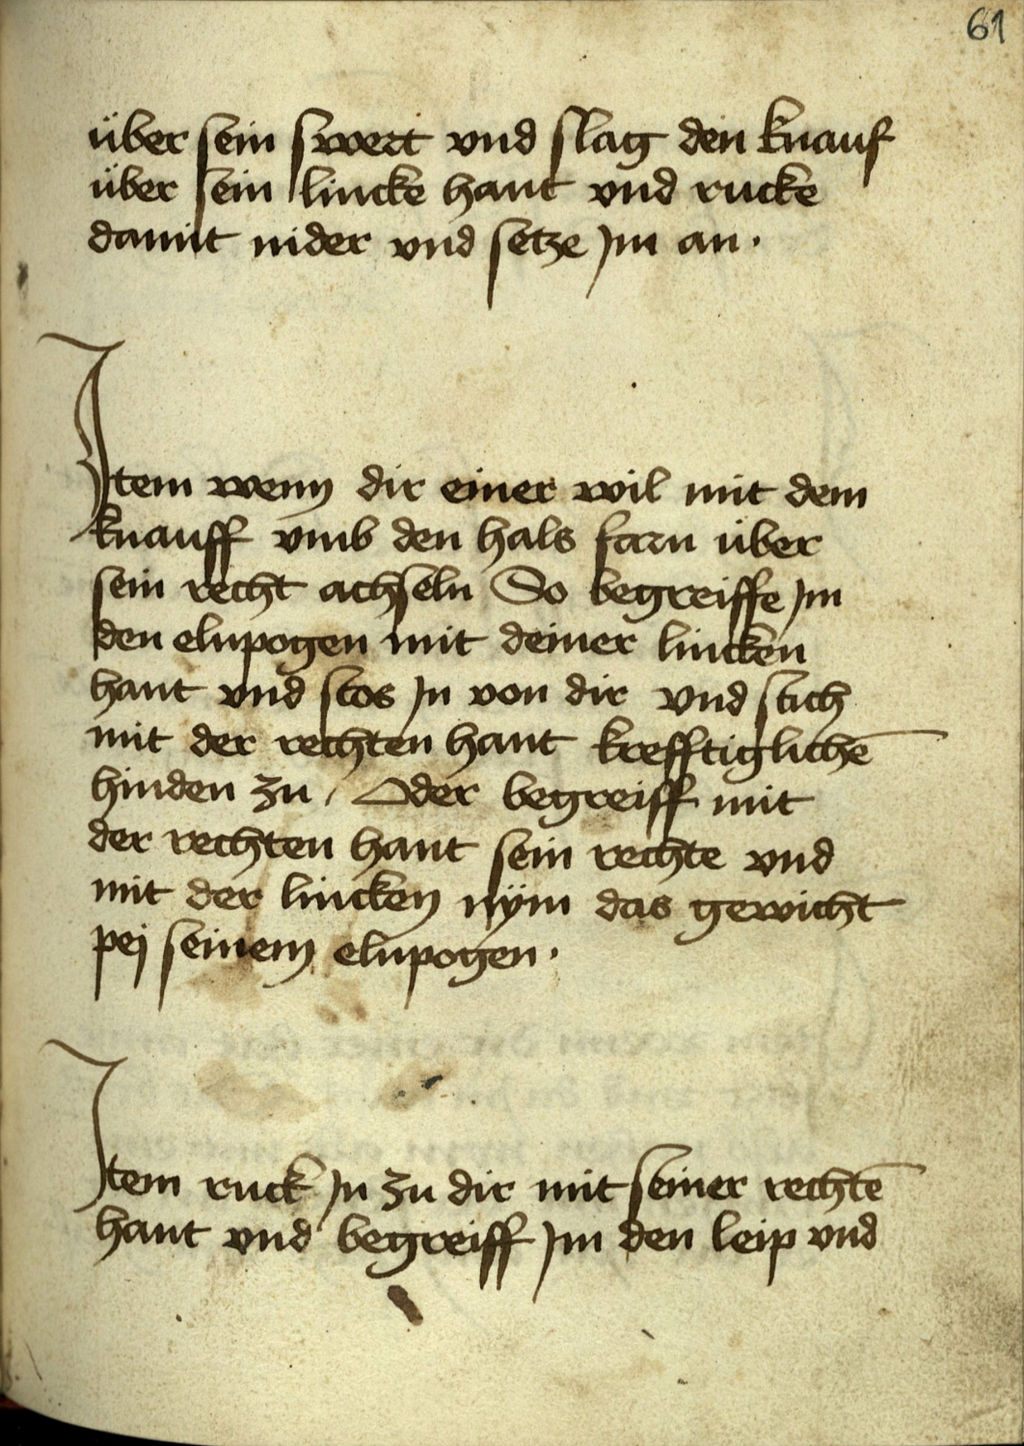 61
über sein swert vnd slag den knauf
über sein lincke hant vnd rucke
damit nider vnd setze Jm an .
Jtem wenn dir einer wil mit dem
knauff vmb den hals farn über
sein recht achseln So begreiffe Jm
den elnpogen mit deiner lincken
hant vnd stos Jn von dir vnd stich
mit der rechten hant krefftiglichē
hinden zu / Oder begreiff mit
der rechten hant sein rechte vnd
mit der lincken nÿm das gewicht
pej seinem elnpogen .
Jtem ruck Jn zu dir mit seiner rechtē
hant vnd begreiff Jm den leip vnd